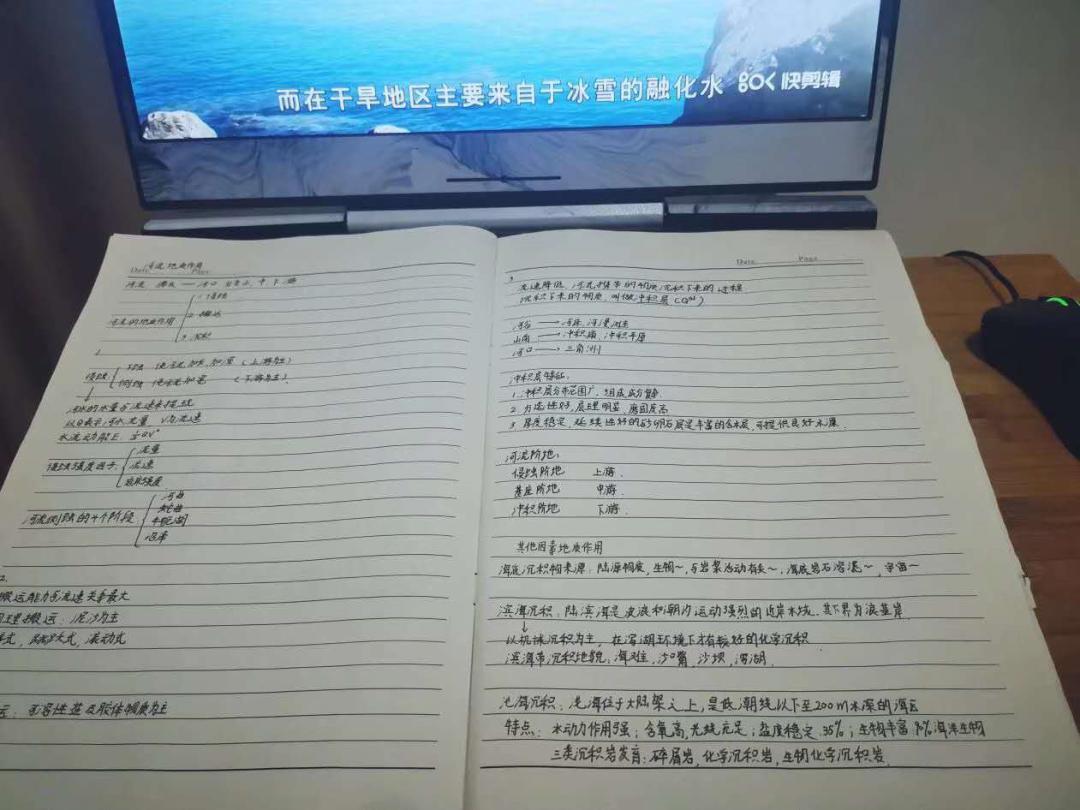 而在干旱地区主要来自于冰雪的融化水 快剪辑
河流地质作用
Date Page
河流 源头 — 河口 分为上、中、下游
河流的地质作用
1. 侵蚀
2. 搬运
3. 沉积
1
侵蚀
下蚀 使河流加长,加深(上游为主)
侧蚀 使河流加宽 (下游为主)
河水的水量与流速来提现
以Q表示河水流量 V为流速
水流动能E
侵蚀强度因子
流量
流速
河流侧蚀的4个阶段
河曲
蛇曲
牛轭湖
2.
搬运能力与流速关系最大
物理搬运:泥沙为主
式,跳跃式,滚动式
运:可溶性盐及胶体物质为主
Date Page
3
流速降低,河流携带的物质沉积下来的过程
沉积下来的物质,叫做冲积层
河谷 → 河床,河漫滩
山南 → 冲积扇,冲积平原
河口 → 三角洲
冲积层特征:
1. 冲积层分布范围广,组成成分复杂
2. 分选性好,层理明显,磨圆度高
3. 厚度稳定,延续性好的砂卵石层是丰富的含水层,可提供良好水源
河流阶地:
侵蚀阶地 上游.
基座阶地 中游.
冲积阶地 下游.
其他因素地质作用
海底沉积物来源:陆源物质,生物~,与岩浆活动有关~,海底岩石溶滤~,宇宙~
滨海沉积:陆滨海是波浪和潮汐运动强烈的近岸水域,其下界为浪基岸
↓
以机械沉积为主,在泻湖环境下才有较好的化学沉积
滨海带沉积地貌:海滩,沙嘴,沙坝,泻湖.
浅海沉积:浅海位于大陆架之上,是低潮线以下至200m水深的海区
特点:水动力作用强;含氧高,光线充足;盐度稳定35%;生物丰富 海洋生物
三类沉积岩发育:碎屑岩,化学沉积岩,生物化学沉积岩.